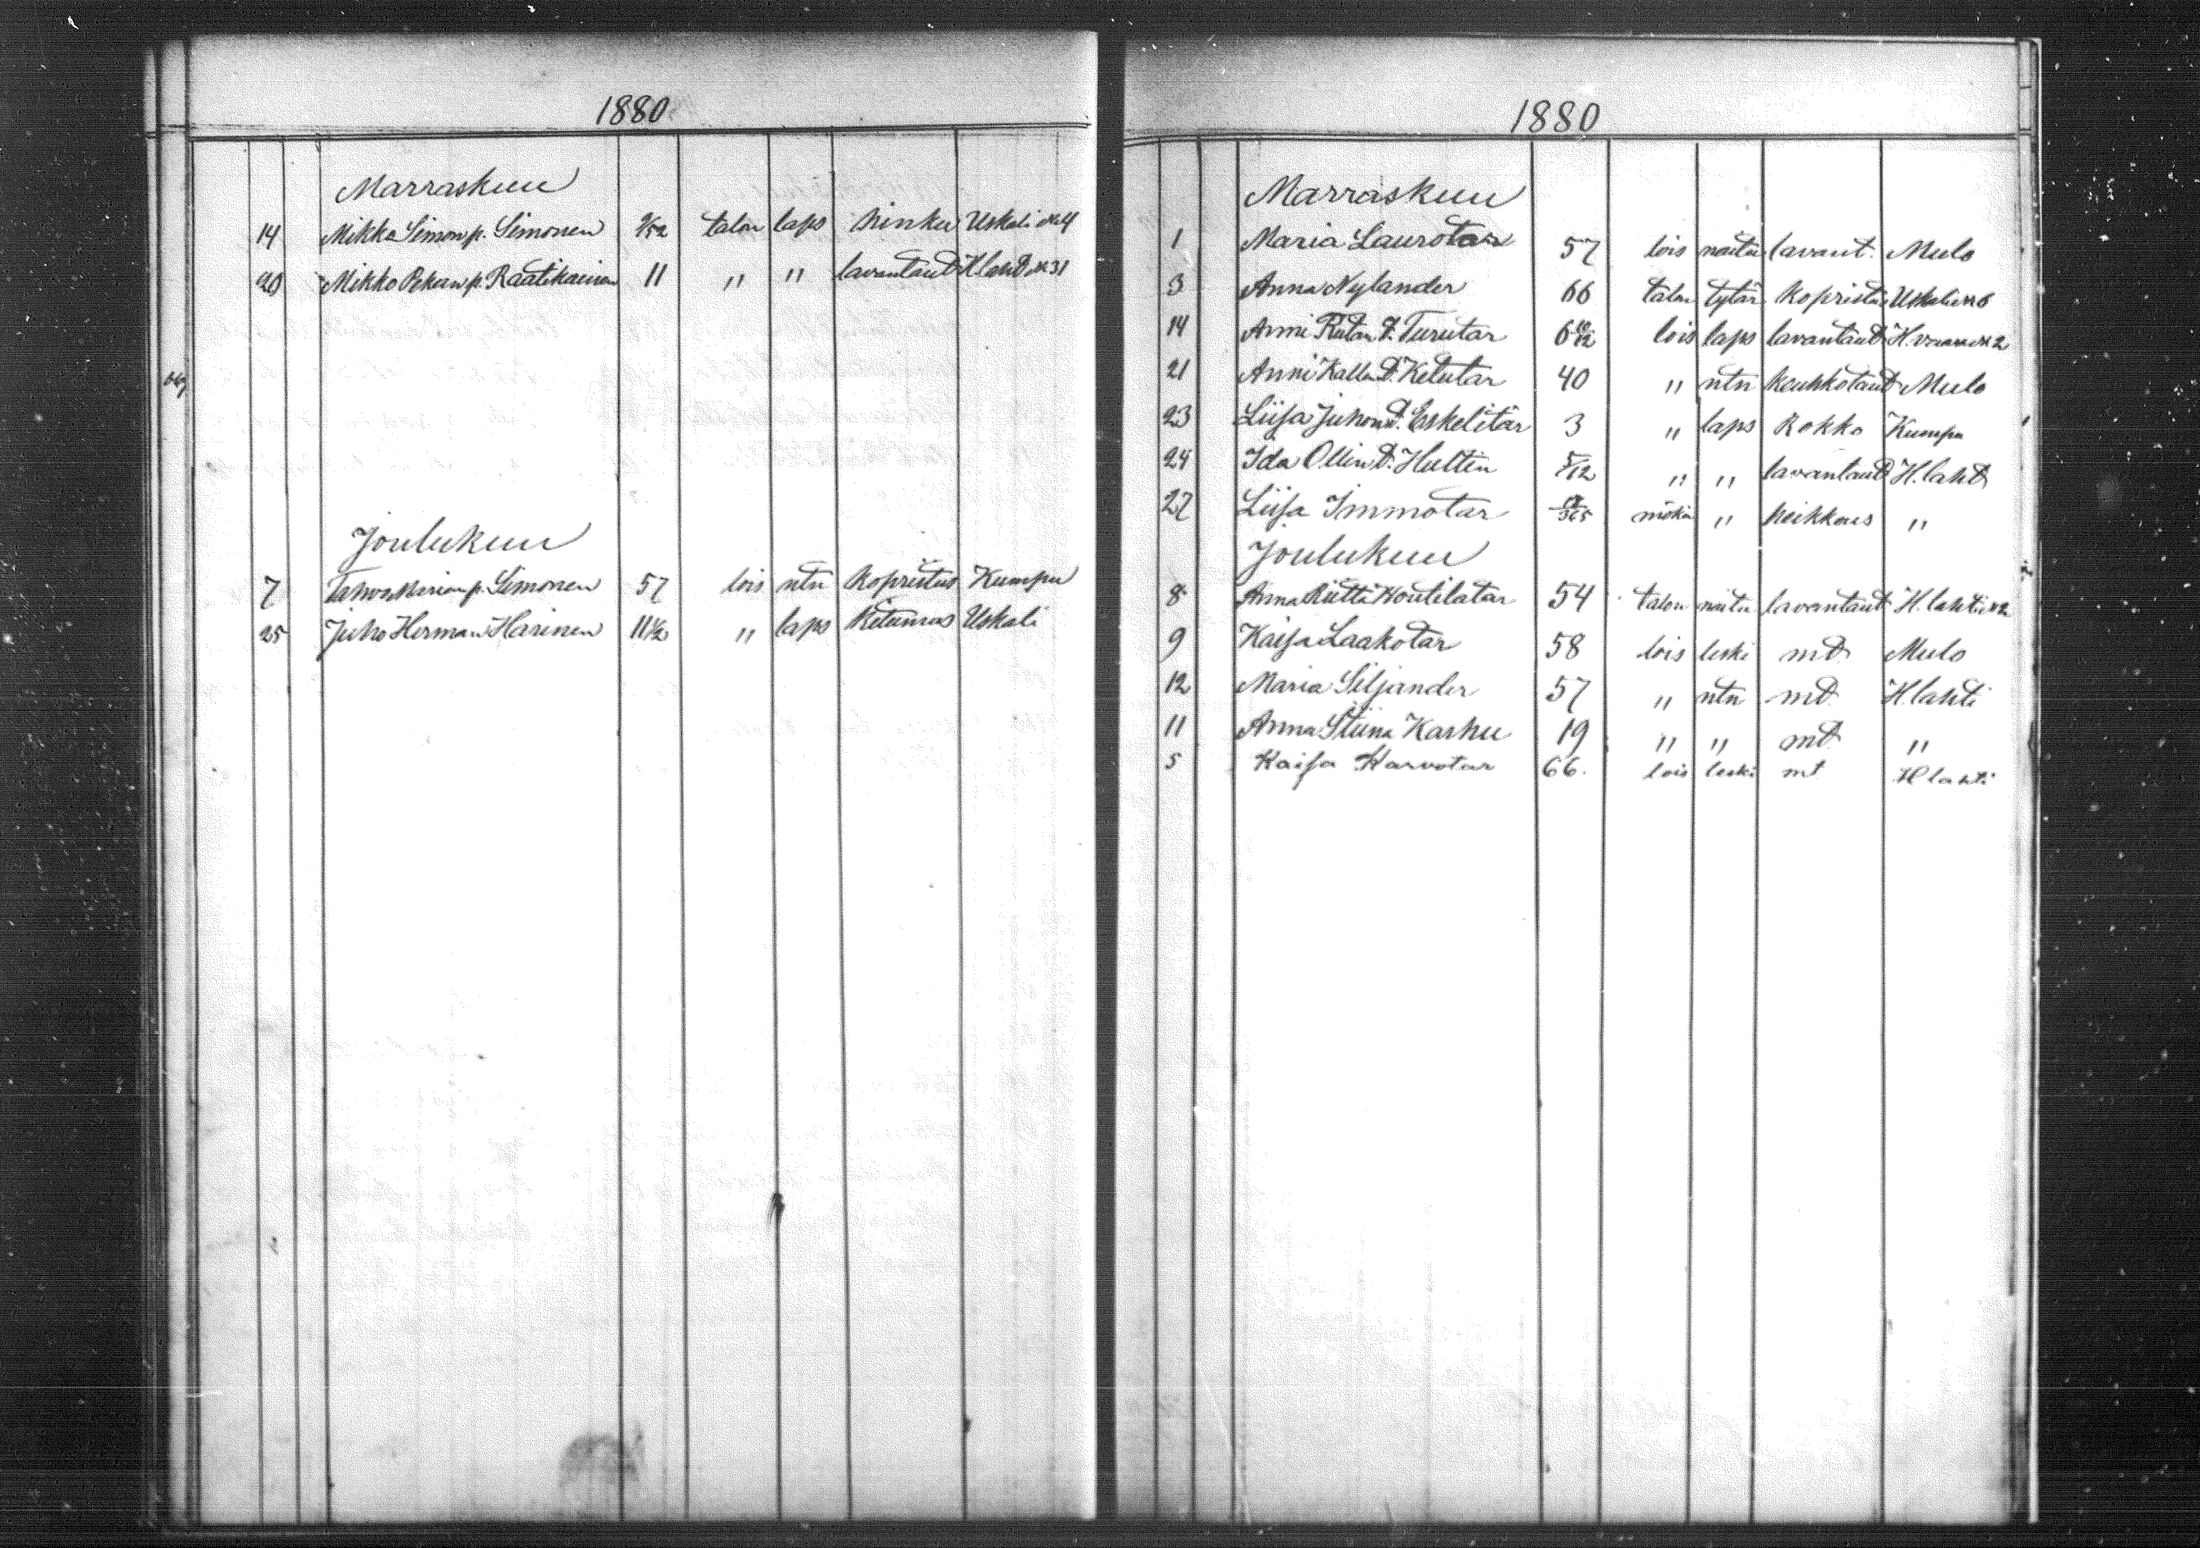 1880
Marraskuu
14 Mikko Simon p. Simonen 9/52 talon laps hinku Uskali № 4
20 Mikko Pekan p. Raatikainen 11 " " lavantaut H.laht № 31
Joulukuu
7 Tahvo Marian p. Simonen 57 lois ntu kopristus Kumpu
25 Juho Herman Harinen 11 1/2 " laps Uskali
1880
Marraskuu
1 Maria Laurotar 57 lois naitu lavant. Mulo
3 Anna Nylander 66 talon tytär kopristus Uskali № 6
14 Anni t. Turutar 6 10/12 lois laps lavantaut H.vaara № 2
21 Anni Kallen t. Ketutar 40 " ntu keuhkotaut Mulo
23 Liisa Juhon t. Eskelitär 3 " laps Rokko Kumpu
24 Ida Ollin t. Huttin 5/12 " " lavantaut H.laht
27 Liisa Immotar /365 mökin " heikkous "
Joulukuu
8 Anna Riitta Houtilatar 54 talon naitu lavantaut H.lahti № 2
9 Kaisa Laakotar 58 lois leski mt Mulo
12 Maria Siljander 57 " ntu mt H.lahti
11 Anna Stiina Karhu 19 " " mt "
5 Kaisa Karvotar 66. lois leski mt H lahti